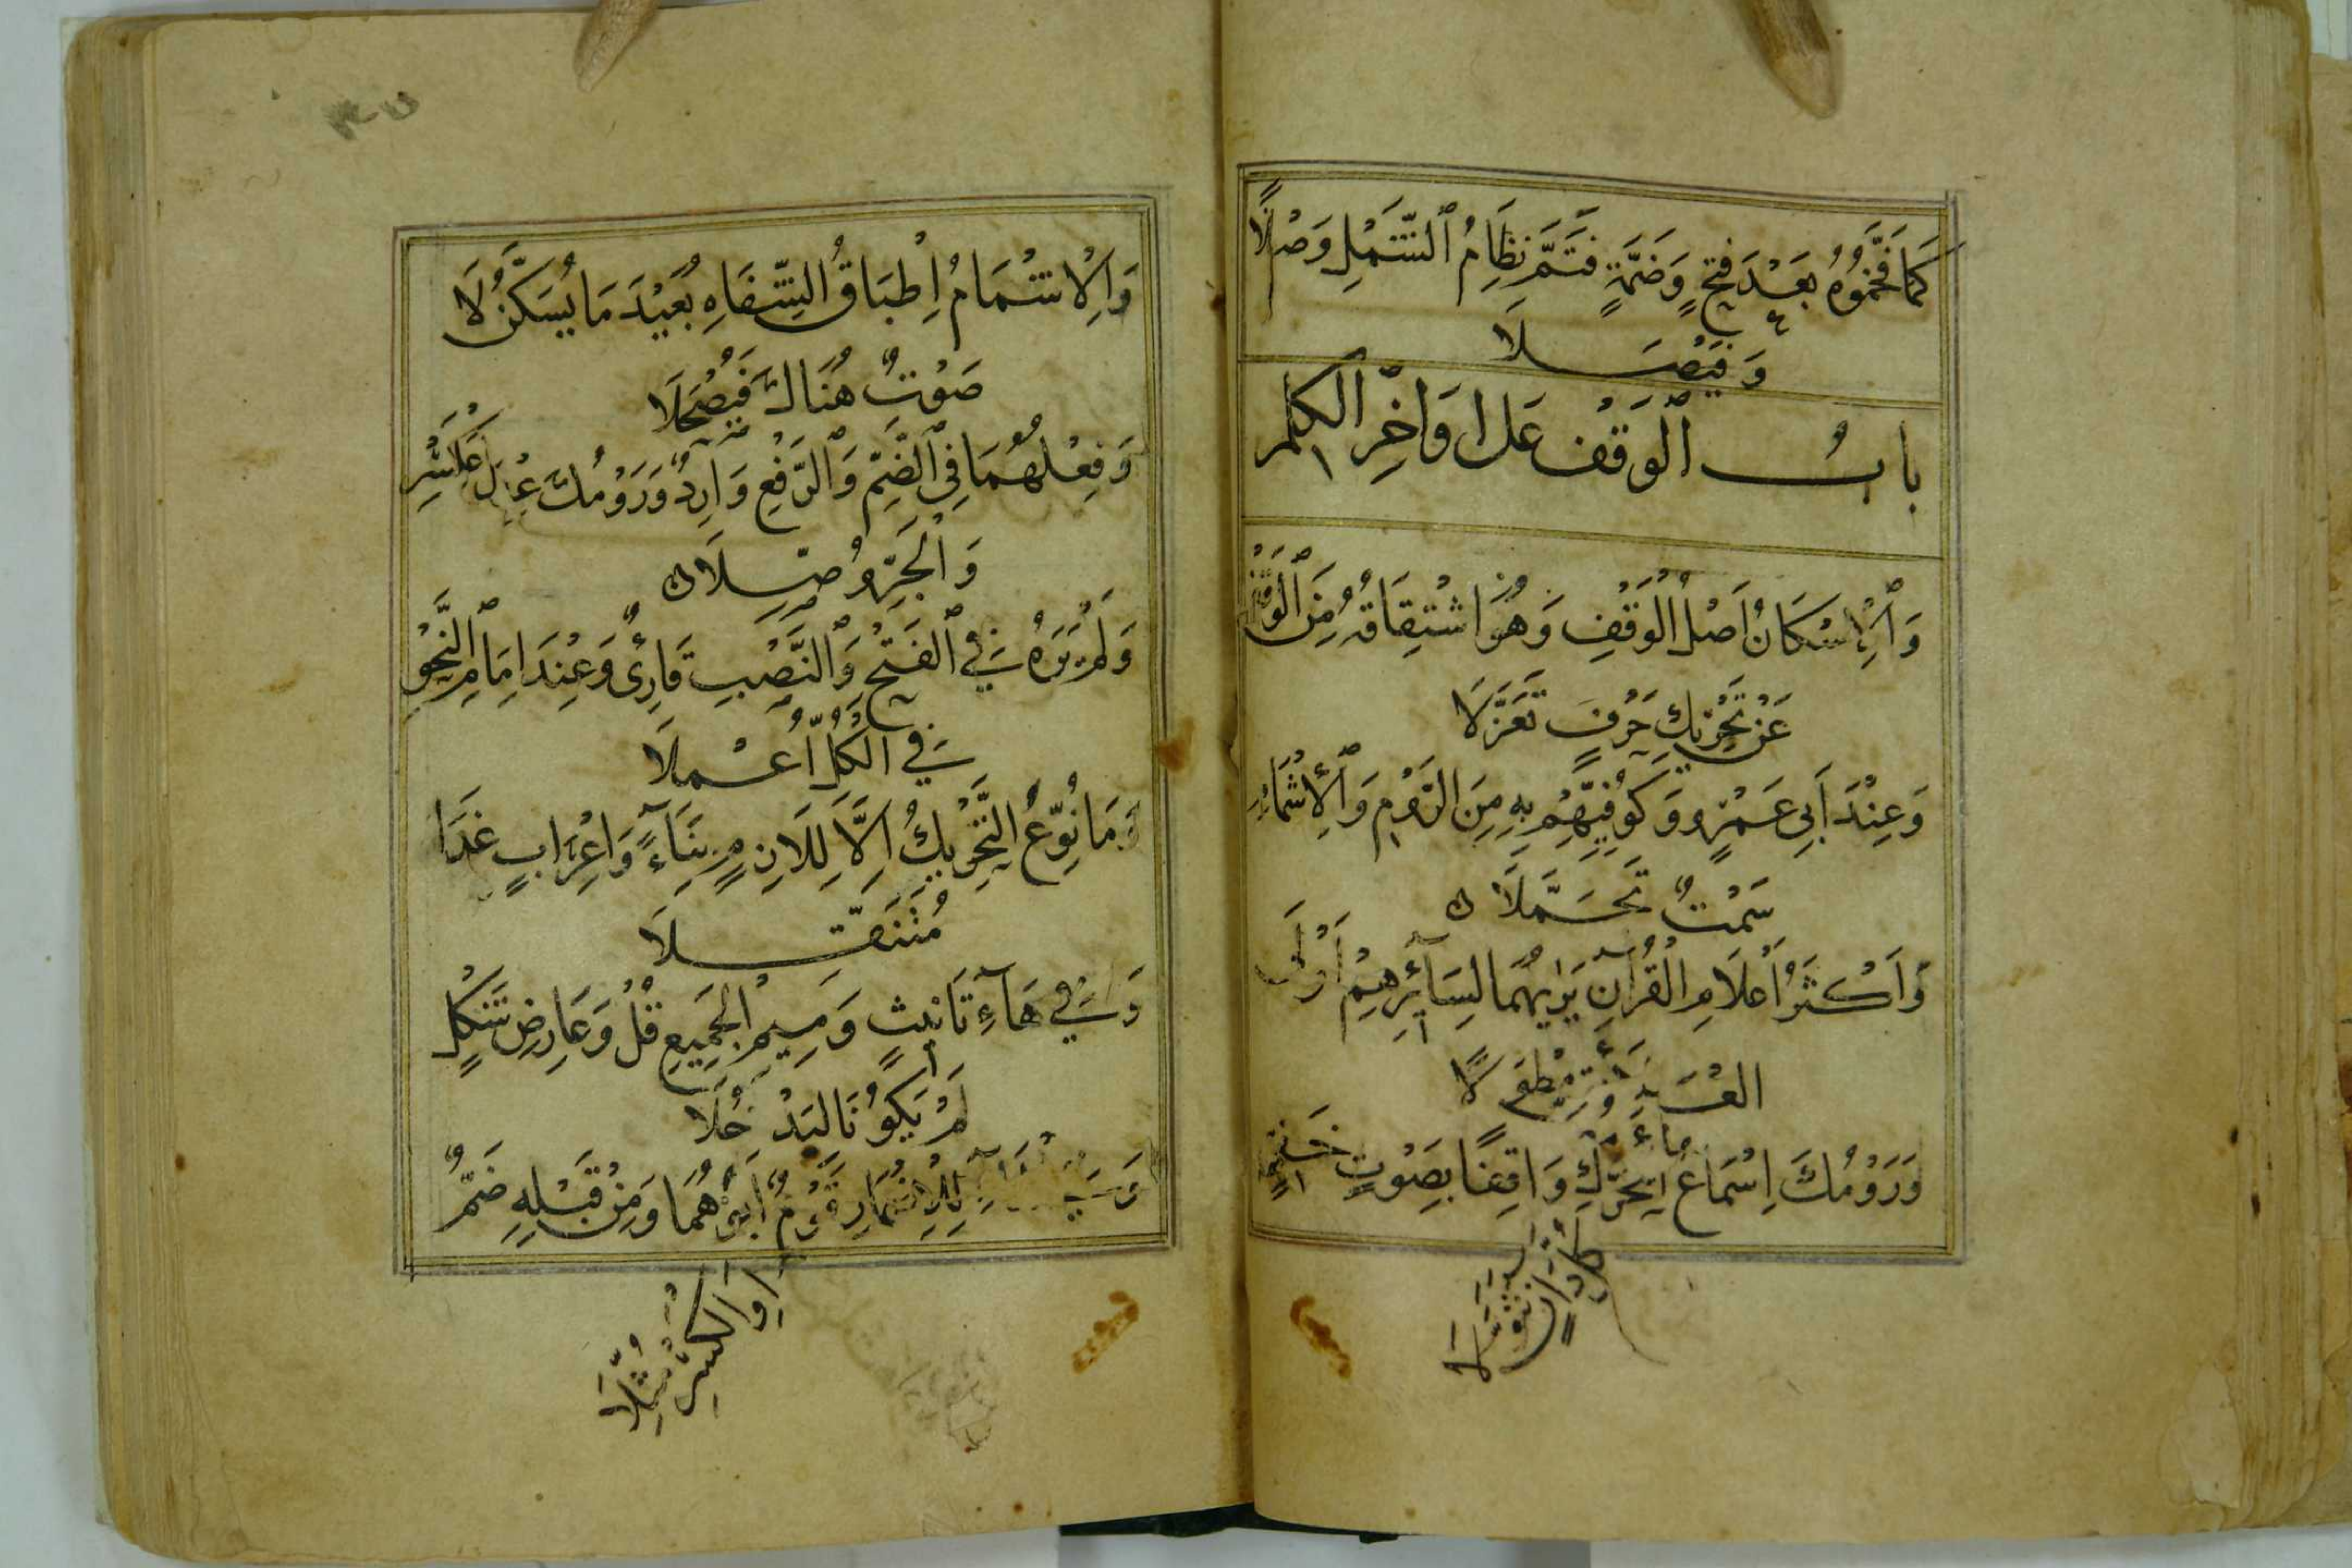 كَمَا فَخَّمُوهُ بَعْدَ فَتْحٍ وَضَمَّةٍ فَتَمَّ نِظَامُ ٱلشَّمْلِ وَصْلًا
وَفَيْصَلَا
بابُ ٱلْوَقْف عَلى اوَاخِرِ الكلم
وَٱلْإِسْكَانُ اَصْلُ الْوَقْفِ وَهُوَ اشْتِقَاقُهُ مِنَ ٱلْوَقْفِ
عَنْ تَحْرِيكِ حَرْفٍ تَعَزَّلَا
وَعِنْدَ أَبِي عَمْرٍو وَكُوفِيِّهِمْ بِهِ مِنَ الرَّوْمِ وَٱلْإِشْمَامِ
سَمْتٌ تَجَمَّلَا
وَاَكْثَرُ أَعْلَامِ الْقُرْآنِ يَرَاهُمَا لِسَآئِرِهِمْ أَوْلَى
العَلَائِقِ مِطْوَلًا
وَرَوْمُكَ اِسْمَاعُ الْمُحَرَّكِ وَاقِفًا بِصَوْتٍ خَفِيٍّ
كُلَّ دَانٍ تَنَوَّلَا
وَالْاِشْمَامُ اِطْبَاقُ الشِّفَاهِ بُعَيْدَ مَا يُسَكَّنُ لَا
صَوْتٌ هُنَاكَ فَيَصْحَلَا
وَفِعْلُهُمَا فِي ٱلضَّمِّ وَٱلرَّفْعِ وَارِدٌ وَرَوْمُكَ عِنْدَ الْكَسْرِ
وَالْجَرِّ وُصِّلَا
وَلَمْ يَرَهُ فِي ٱلْفَتْحِ وَٱلنَّصْبِ قَارِئٌ وَعِنْدَ اِمَامِ ٱلنَّحْوِ
فِي الْكُلِّ اُعْمِلَا
وَمَا نُوِّعَ التَّحْرِيكُ اِلَّا لِلَازِمٍ بِنَآءً وَاِعْرَابٍ غَدَا
مُتَنَقِّلَا
وَفِي هَآءِ تَانِيثٍ وَمِيمِ الْجَمِيعِ قُلْ وَعَارِضِ شَكْلٍ
لَمْ يَكُونَا لِيَدْخُلَا
وَفِي الْهَاءِ لِلْاِضْمَارِ قَوْمٌ اَبَوْهُمَا وَمِنْ قَبْلِهِ ضَمٌّ
اَوِ الْكَسْرُ مُثِّلَا